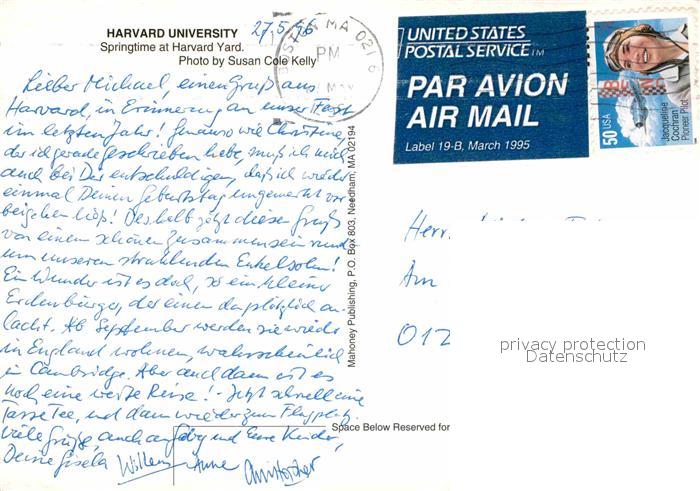 HARVARD UNIVERSITY
Springtime at Harvard Yard.
Photo by Susan Cole Kelly
27.5.96
BOSTON MA 021 6
PM
MAY
UNITED STATES
POSTAL SERVICE TM
PAR AVION
AIR MAIL
Label 19-B, March 1995
50 USA
Jacqueline
Cochran
Pioneer Pilot
Lieber Michael, einen Gruß aus
Harvard, in Erinnerung an unser Fest
im letzten Jahr! Genauso wie Christine,
der ich gerade geschrieben habe, muß ich mich
auch bei Dir entschuldigen, daß ich wieder
einmal Deinen Geburtstag unbemerkt vor-
beigehen ließ! Deshalb jetzt dieser Gruß
von einem schönen Zusammensein rund
um unseren strahlenden Enkelsohn!
Ein Wunder ist es doch, so ein kleiner
Erdenbürger, der einen da plötzlich an-
lacht. Ab September werden sie wieder
in England wohnen, wahrscheinlich
in Cambridge. Aber auch dann ist es
noch eine weite Reise! - Jetzt schnell eine
Tasse Tee, und dann wieder zum Flugplatz.
Viele Grüße auch an und Eure Kinder,
Deine Gisela Willem Anne Christopher
Mahoney Publishing, P.O. Box 803, Needham, MA 02194
Herr
Am
012
privacy protection
Datenschutz
Space Below Reserved for